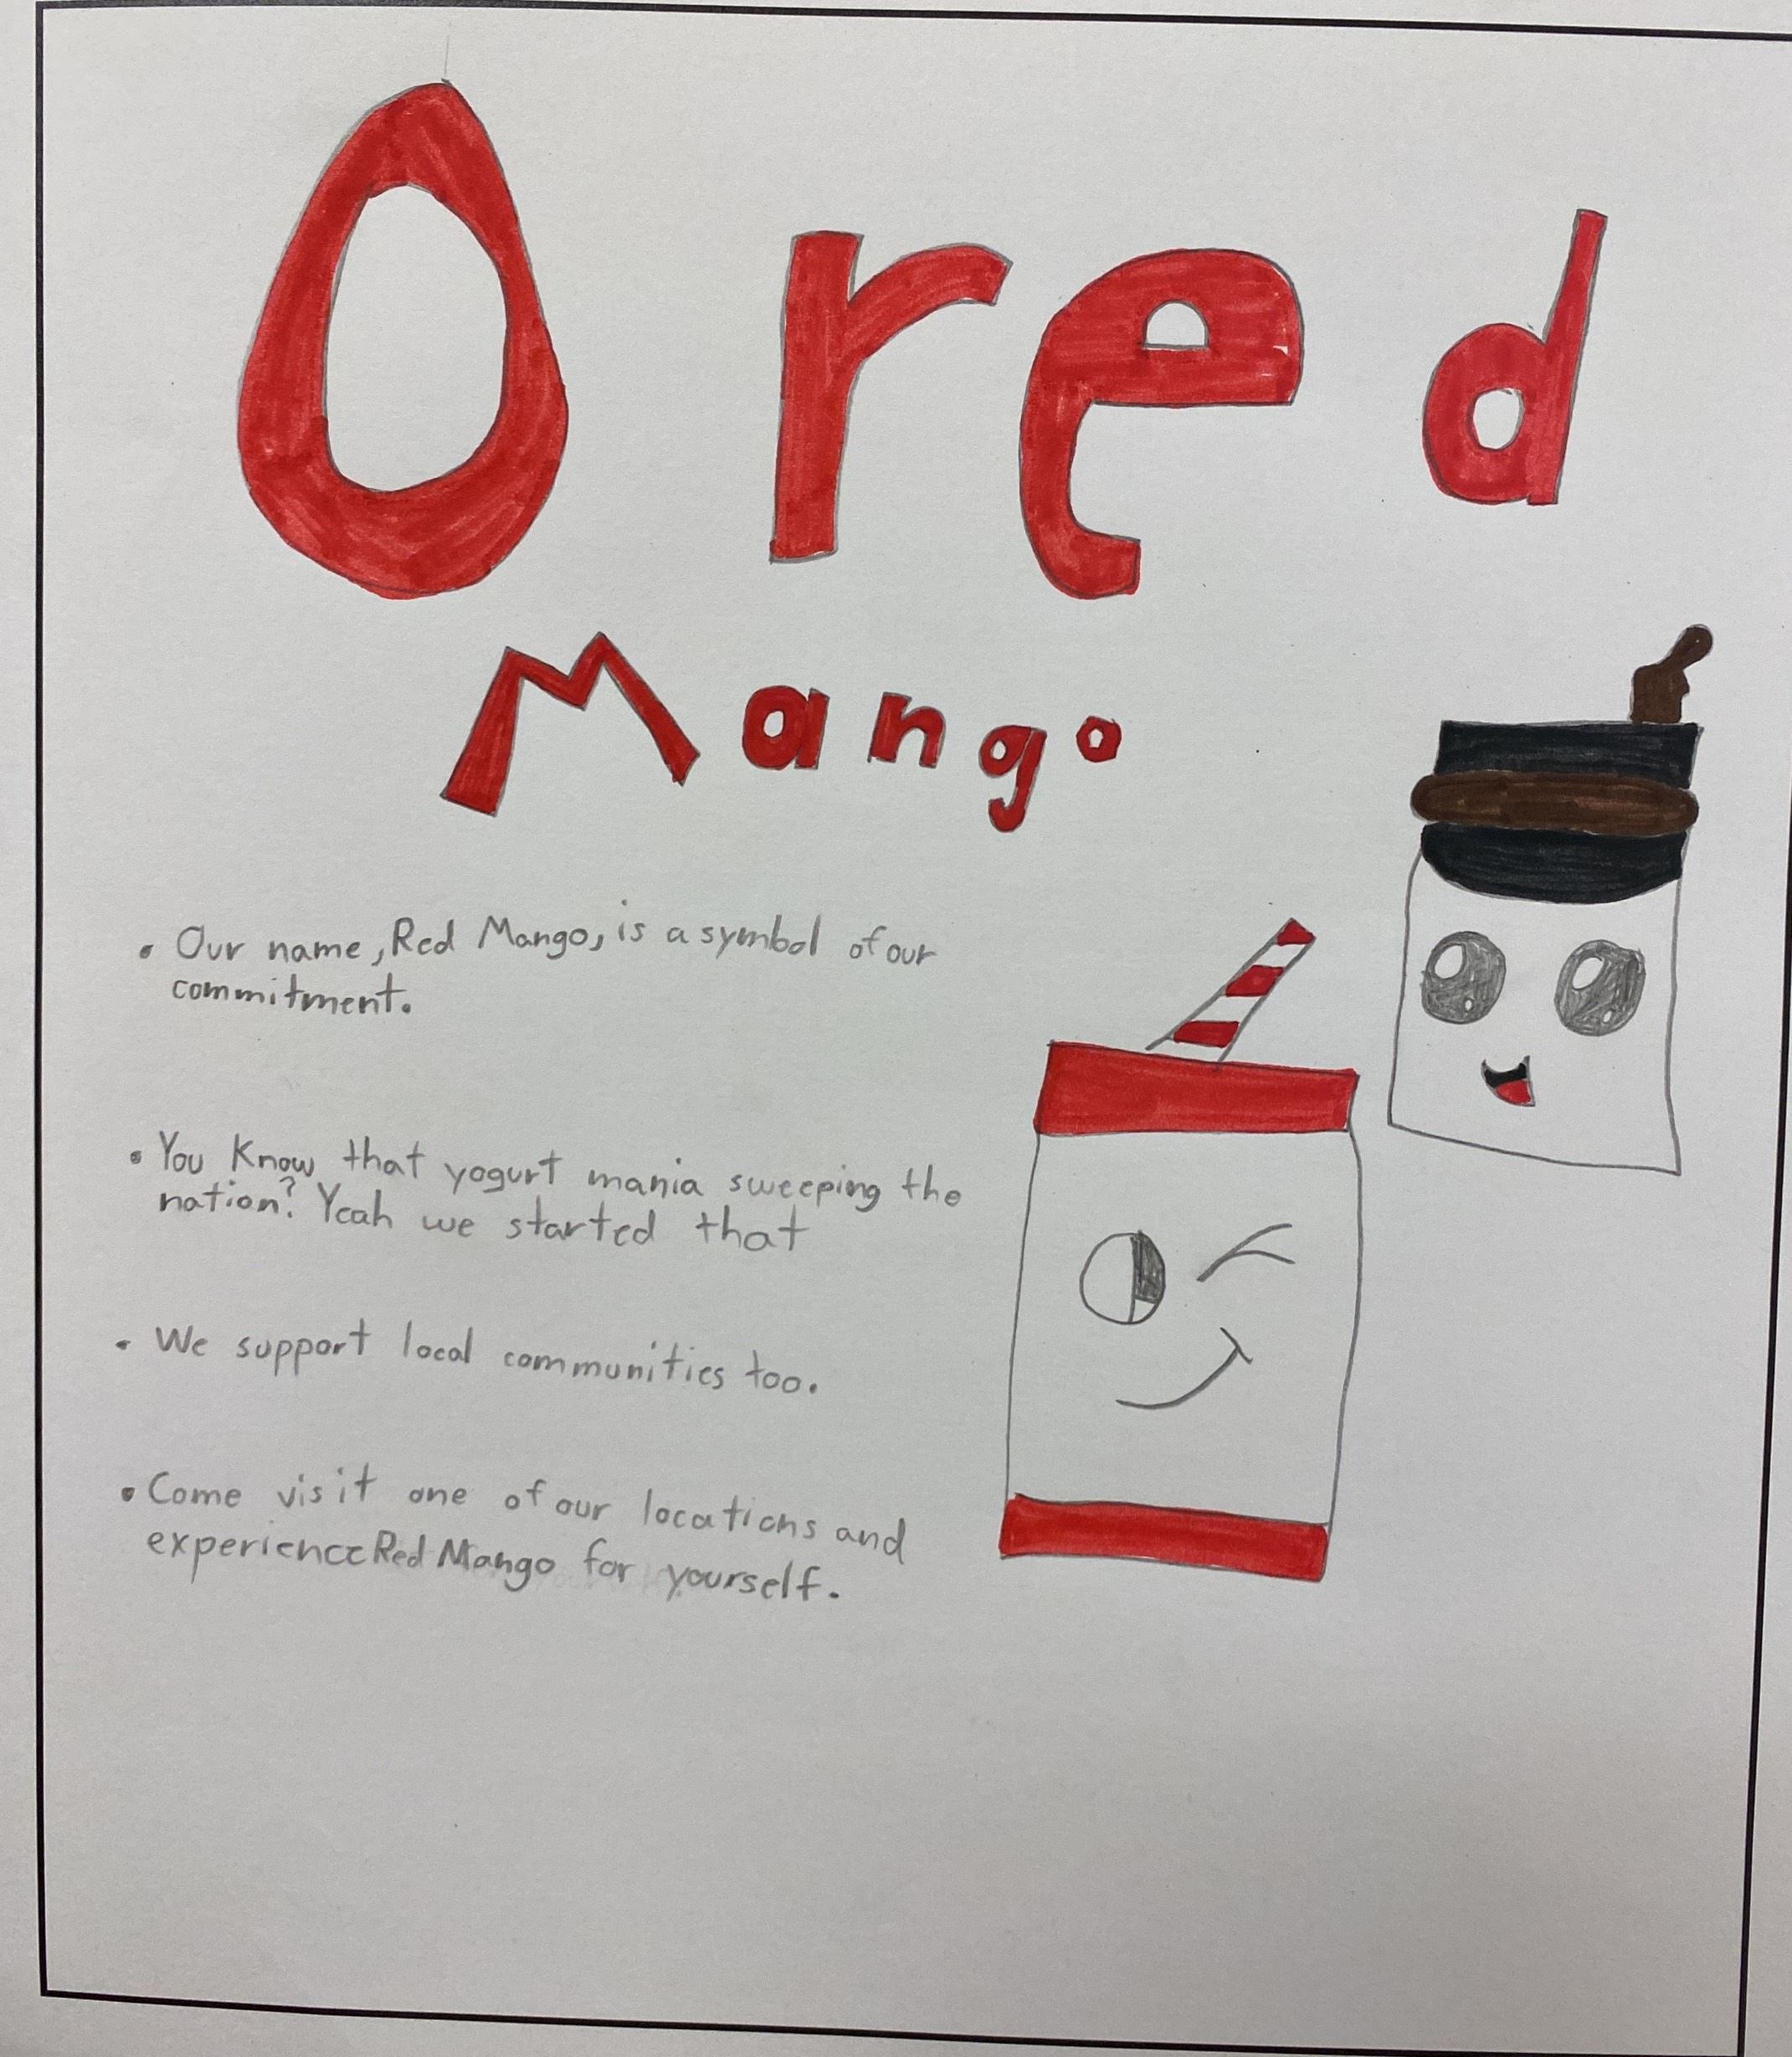 O red
Mango
• Our name, Red Mango, is a symbol of our
commitment.
• You Know that yogurt mania sweeping the
nation? Yeah we started that
• We support local communities too.
• Come visit one of our locations and
experience Red Mango for yourself.